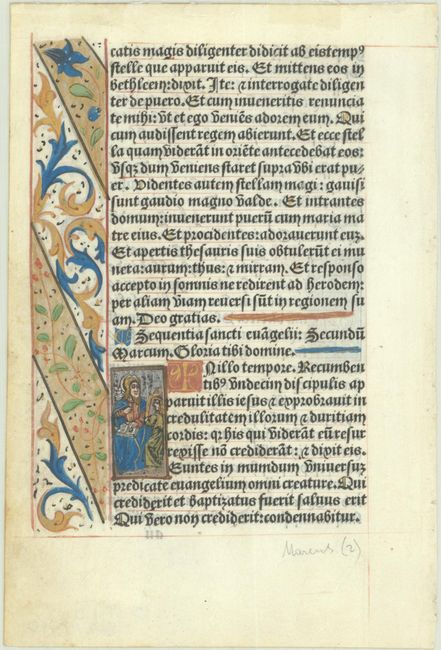 catis magis diligenter didicit ab eis temp⁹
stelle que apparuit eis. Et mittens eos in
bethleem: dixit. Ite: ⁊ interrogate diligen
ter de puero. Et cum inueneritis renuncia
te mihi: vt et ego veniēs adorem eum. Qui
cum audissent regem abierunt. Et ecce stel
la quam viderāt in oriēte antecedebat eos:
vsqz dum veniens staret supra vbi erat pu-
er. Videntes autem stellam magi: gauisi
sunt gaudio magno valde. Et intrantes
domum: inuenerunt puerū cum maria ma
tre eius. Et procidentes: adorauerunt euz.
Et apertis thesauris suis obtulerūt ei mu
nera: aurum: thus: ⁊ mirram. Et responso
accepto in somnis ne redirent ad herodem:
per aliam viam reuersi sūt in regionem su
am. Deo gratias.
Sequentia sancti euāgelii: Secundū
Marcum. Gloria tibi domine.
IN illo tempore. Recumben
tib⁹ vndecim discipulis ap
paruit illis iesus ⁊ exprobrauit in
credulitatem illorum ⁊ duritiam
cordis: qr his qui viderāt eū resur
rexisse nō crediderāt: ⁊ dixit eis.
Euntes in mundum vniuersuz
predicate euangelium omni creature. Qui
crediderit et baptizatus fuerit saluus erit
Qui vero non crediderit: condennabitur.
Marcus. (2)